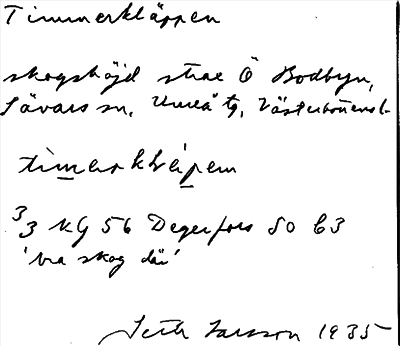 Timmerkläppen
skogshöjd strax Ö Bodbyn,
Sävars sn, Umeå tg, Västerbottens l.
timerkläpem
33 KG 56 Degerfors SO C3
'bra skog där'
Seth Larsson 1935